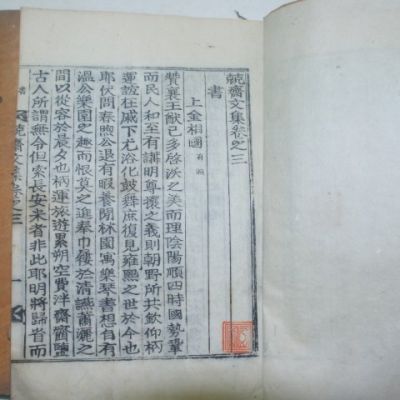 兢齋文集卷之三
書
上金相國
贊襄王猷已多啓沃之美而理陰陽順四時國勢鞏
而民人和至有講明尊攘之義則朝野所共欽仰柄
運諒在戚下尤浴化鼓舞庶復見雍熙之世於今也
耶伏問春煦公退有暇養閒林園寓樂琴書想自有
溫公樂園之趣而恨莫之進奉巾屨於淸讌蕭灑之
間以從容於晨夕也柄運旅遊累朔空費泮齋虀鹽
古人所謂無令但索長安米者非此耶明將歸省而
兢齋文集 卷之三
一